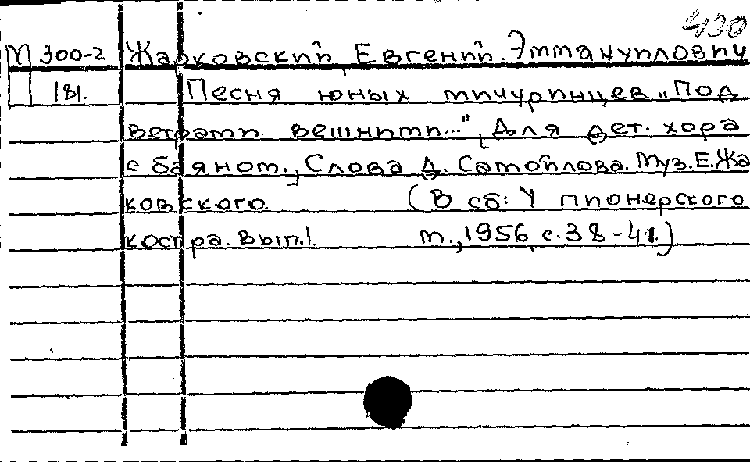 430
М 300-2 Жарковский Евгений Эммануилович
181. Песня юных мичуринцев „Под
ветрами вешними..." [Для дет. хора
с баяном.] Слова Д. Самойлова. Муз. Е. Жа
ковского. (В сб: У пионерского
костра. Вып.1 М., 1956, с. 38-41.)